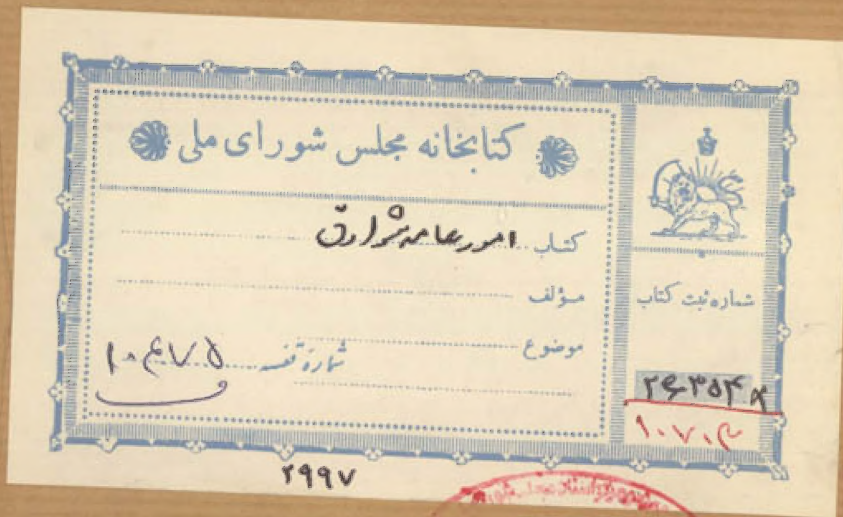 کتابخانه مجلس شورای ملی
کتاب امور عامه شوارق
مؤلف
موضوع
شمارهٔ قفسه ۱۰۴۷۵
شماره ثبت کتاب
۲۶۳۵۴
۱۰۷۰۳
۲۹۹۷